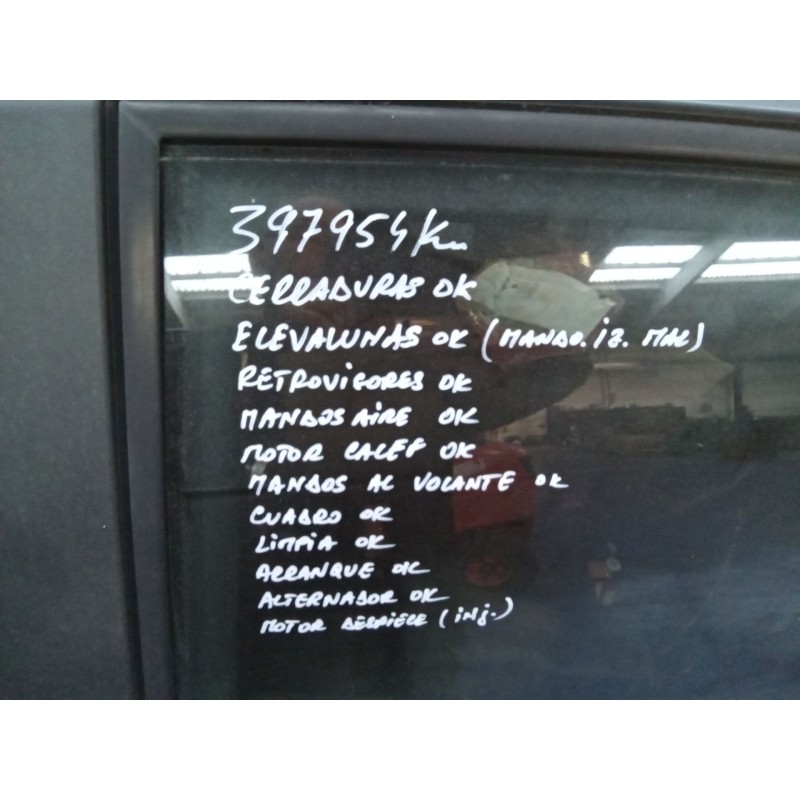 397954 Km
CERRADURAS OK
ELEVALUNAS OK (MANDO.IZ. MAL)
RETROVISORES OK
MANDOS AIRE OK
MOTOR CALEF OK
MANDOS AL VOLANTE OK
CUADRO OK
LIMPIA OK
ARRANQUE OK
ALTERNADOR OK
MOTOR DESPIECE (inj.)